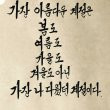 가장 아름다운 계절은
봄도
여름도
가을도
겨울도 아닌
가장 나 다웠던 계절이다.